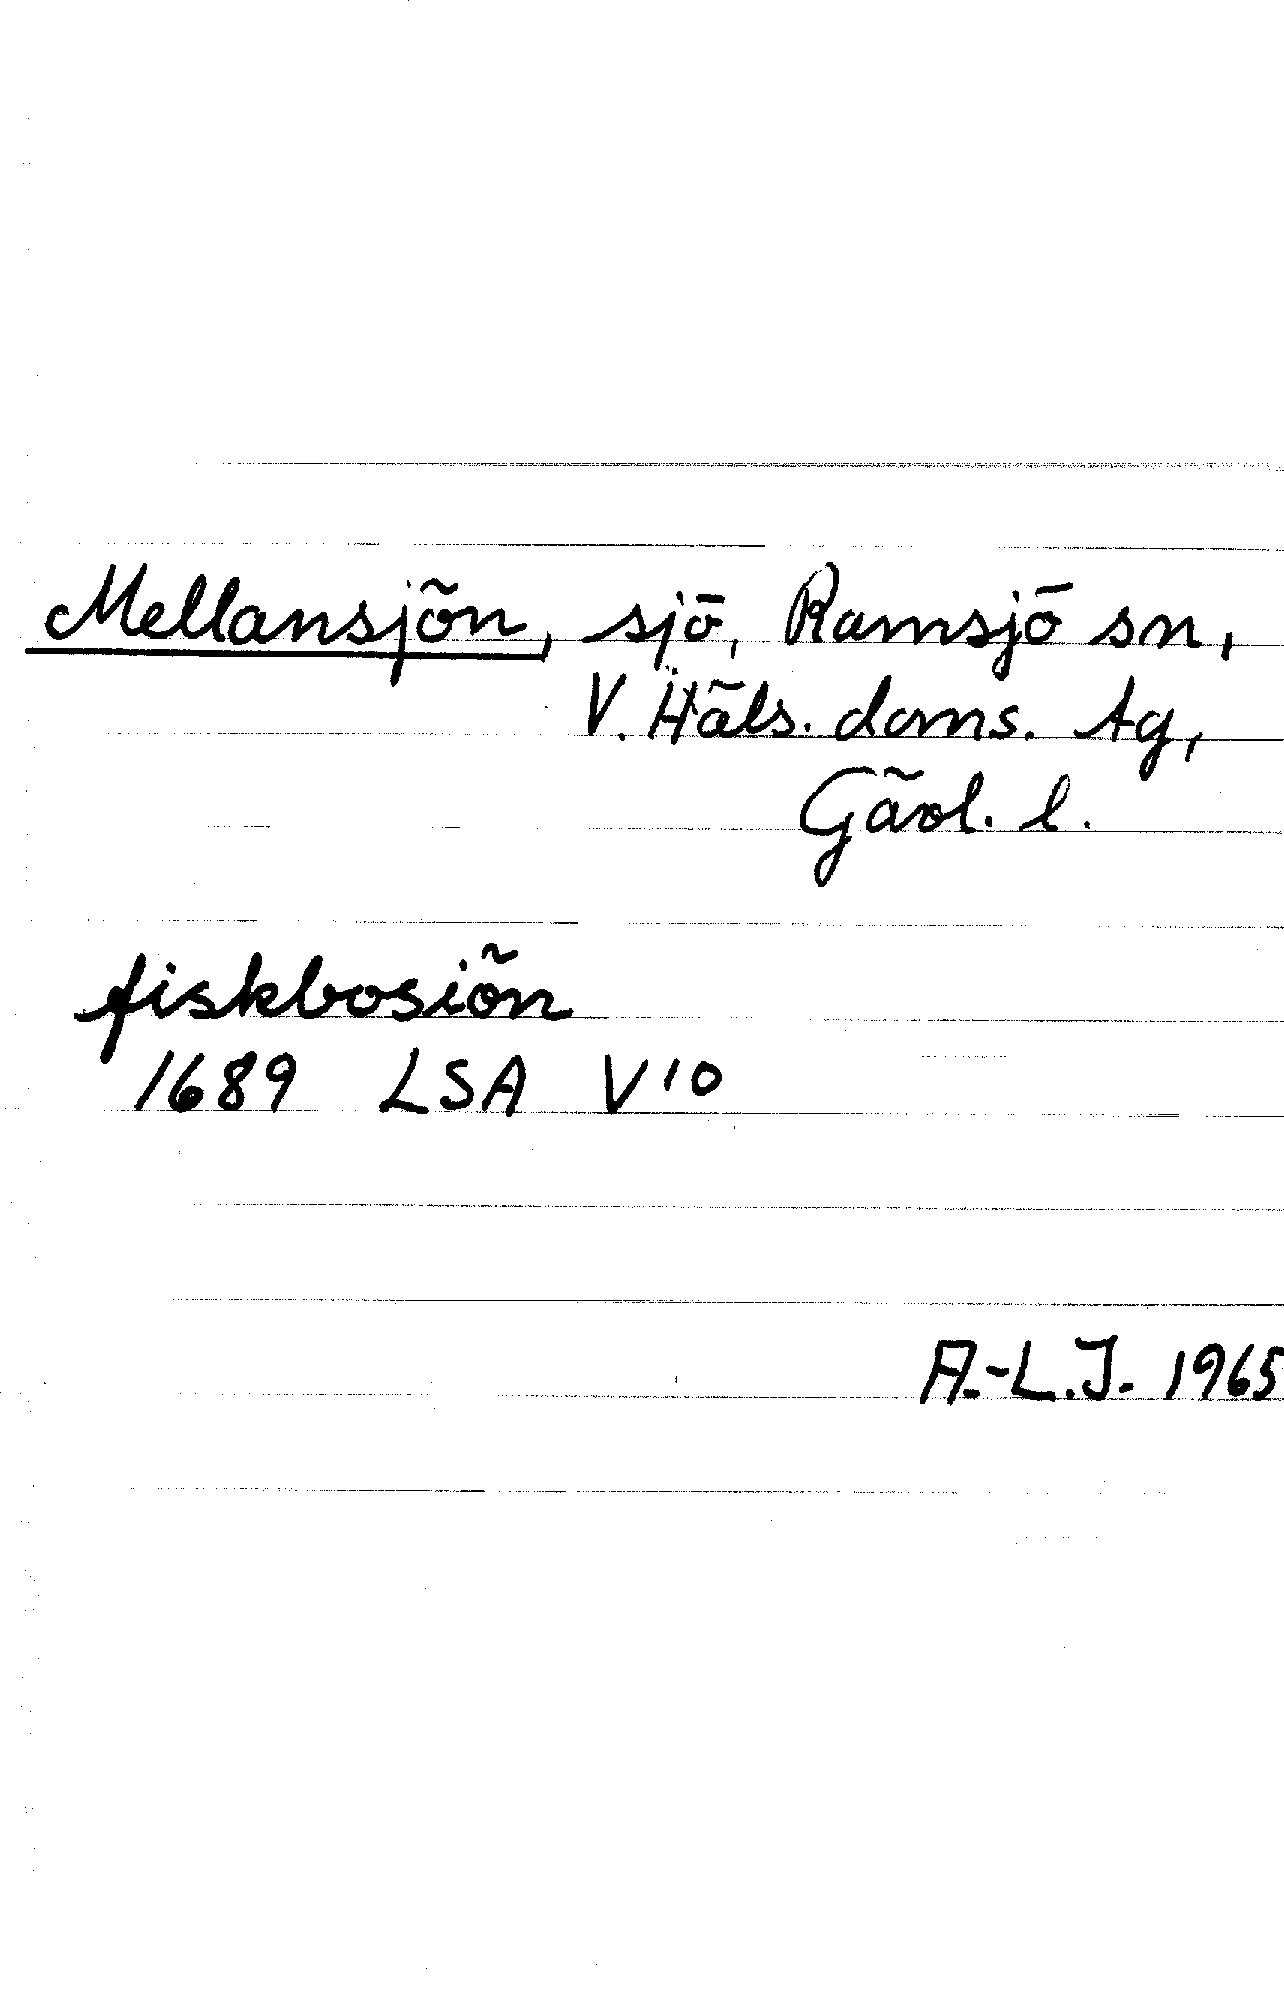 Mellansjön, sjö, Ramsjö sn,
V. Häls. doms. tg,
Gävl. l.
fiskbosiön
1689 LSA V10
A.-L.J. 1965